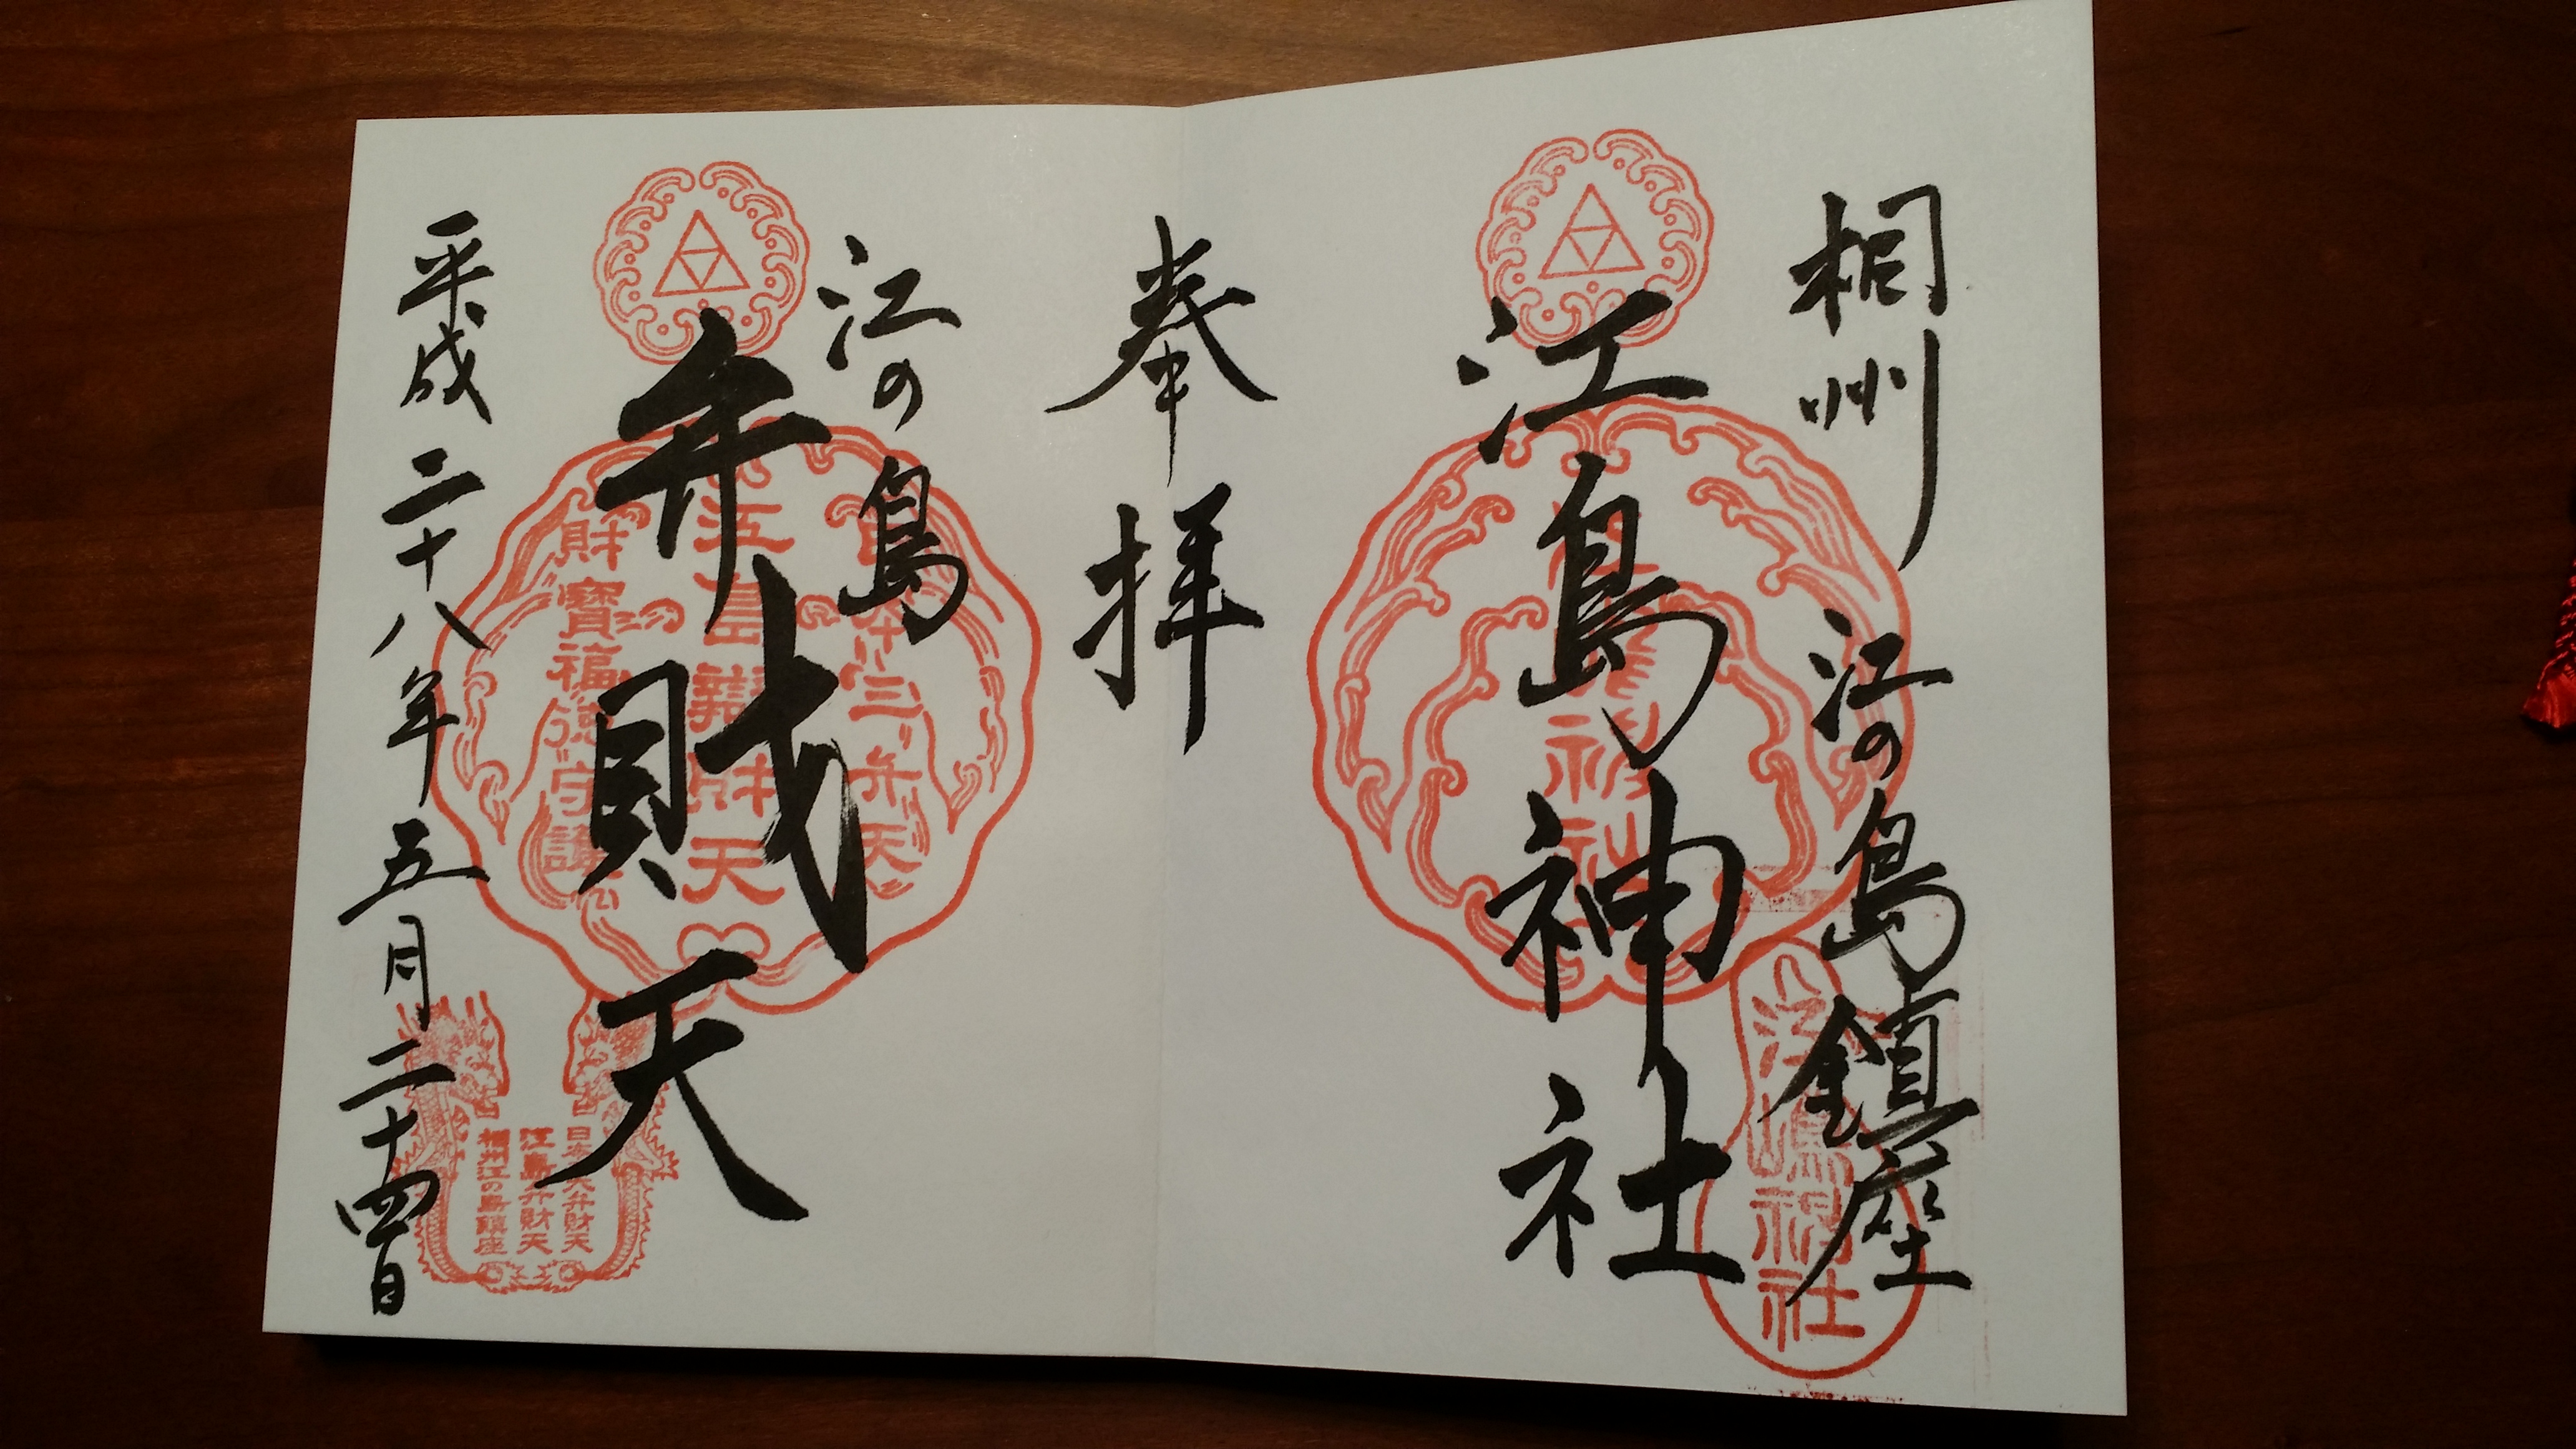 相州 江の島鎮座
江島神社
奉拝
江の島
弁財天
平成二十八年五月二十四日
江島神社
江島辯財天
財寶福徳守護
江島弁財天
相州江の島鎮座